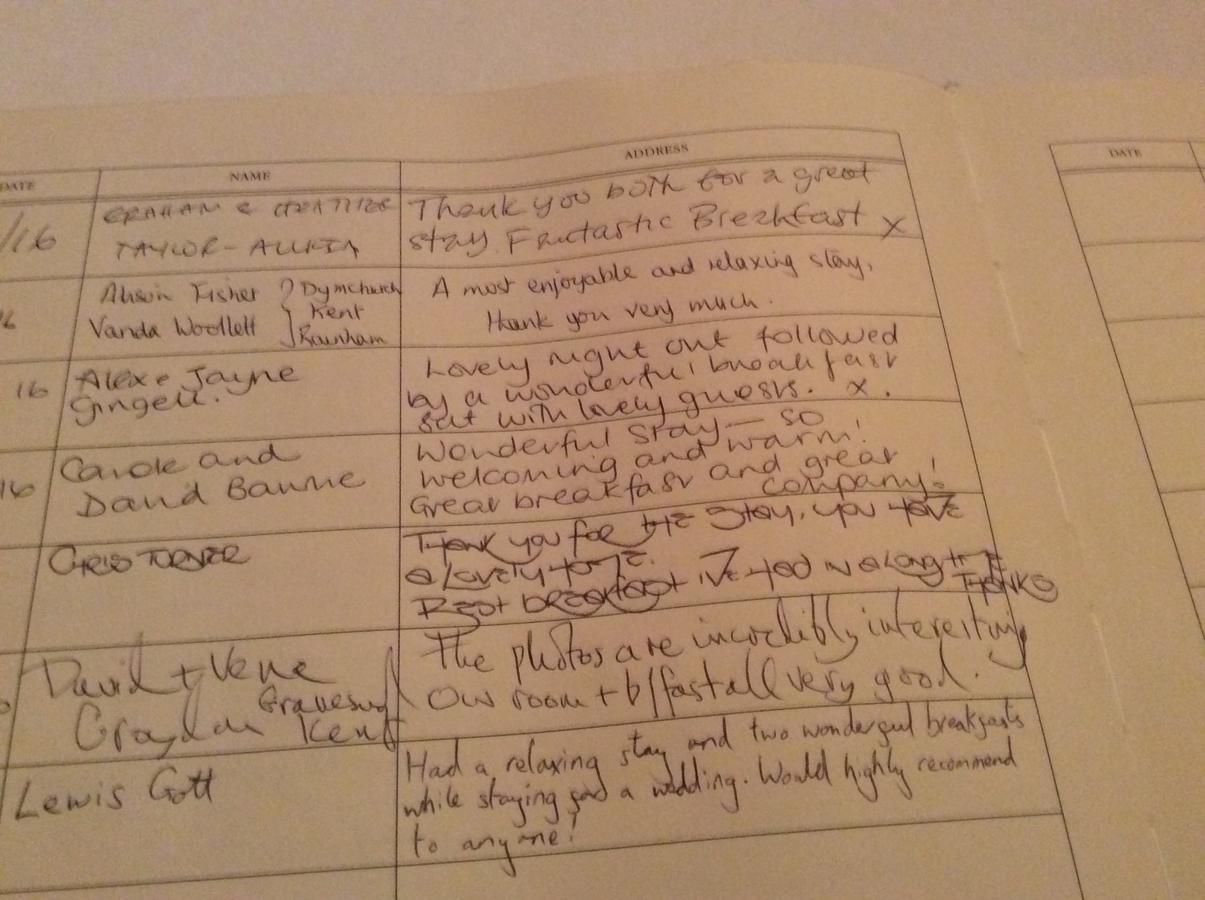 DATE NAME ADDRESS DATE
/16 GRAHAM & HEATHER Thank you both for a great
TAYLOR- stay. Fantastic Breakfast x
6 Alison Fisher } Dymchurch A most enjoyable and relaxing stay,
Kent
Vanda Woollett Rainham thank you very much.
16 Alex & Jayne Lovely night out followed
Gingell. by a wonderful breakfast
sat with lovely guests. x.
16 Carole and Wonderful stay — so
David welcoming and warm!
Great breakfast and great
company!
CHRIS TURNER Thank you for the stay, you have
a lovely home.
Best breakfast I've had in a long time
THANKS
David + Verne The photos are incredibly interesting
Gravesend
Kent Our room + b/fast all very good.
Lewis Gott Had a relaxing stay and two wonderful breakfasts
while staying for a wedding. Would highly recommend
to anyone!